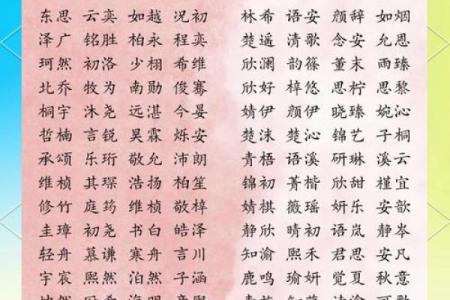 东思 云奕 如越 况初 林希 语安 颜辞 如烟
泽广 铭胜 柏永 程奕 楚遥 清歌 念安 允思
珂然 初洛 少栩 希维 欣澜 韵篠 董末 雨臻
北乔 牧为 南勋 俊骞 欣好 梓悠 思柠 思黎
桐宇 沐尧 远湛 今晏 婧伊 颜伊 晓臻 婉沁
哲楠 言锐 昊霖 烁安 楚沫 楚沁 锦艺 子桐
承颂 乐珩 敬允 沛朗 青梧 语溪 研琳 溪云
维桢 其琛 浩扬 柏笙 锦初 菁楷 欣甜 槿宜
修竹 庭筠 维桢 敬梓 婧棋 薇瑶 妍乐 安歆
圭璋 初尧 书白 皓泽 静欣 晴初 语岚 静岑
轻舟 慕谦 寒舟 言川 知渝 熙禾 君思 安凡
宇宸 熙然 泊然 子涵 鹿鸣 瑜妍 觉夏 秋意